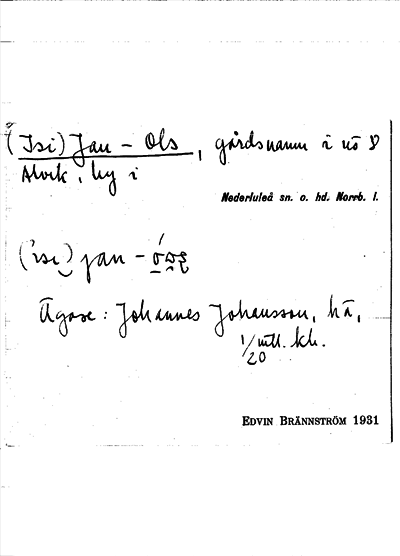 (Isi) Jan-Ols, gårdsnamn i nö 8
Alvik, by i
Nederluleå sn. o. hd. Norrb. l.
Ägare: Johannes Johansson, hä,
1/20 mtl. kr.
EDVIN BRÄNNSTRÖM 1931